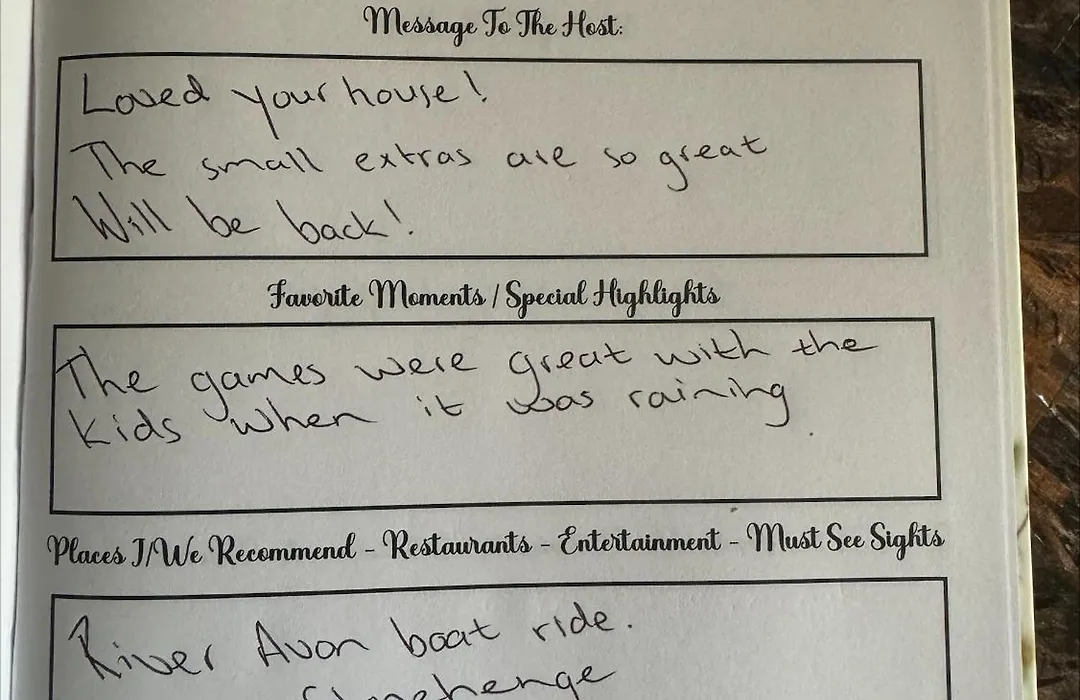 Message To The Host:
Loved your house!
The small extras are so great
Will be back!
Favorite Moments / Special Highlights
The games were great with the
kids when it was raining
Places I/We Recommend - Restaurants - Entertainment - Must See Sights
River Avon boat ride.
Stonehenge